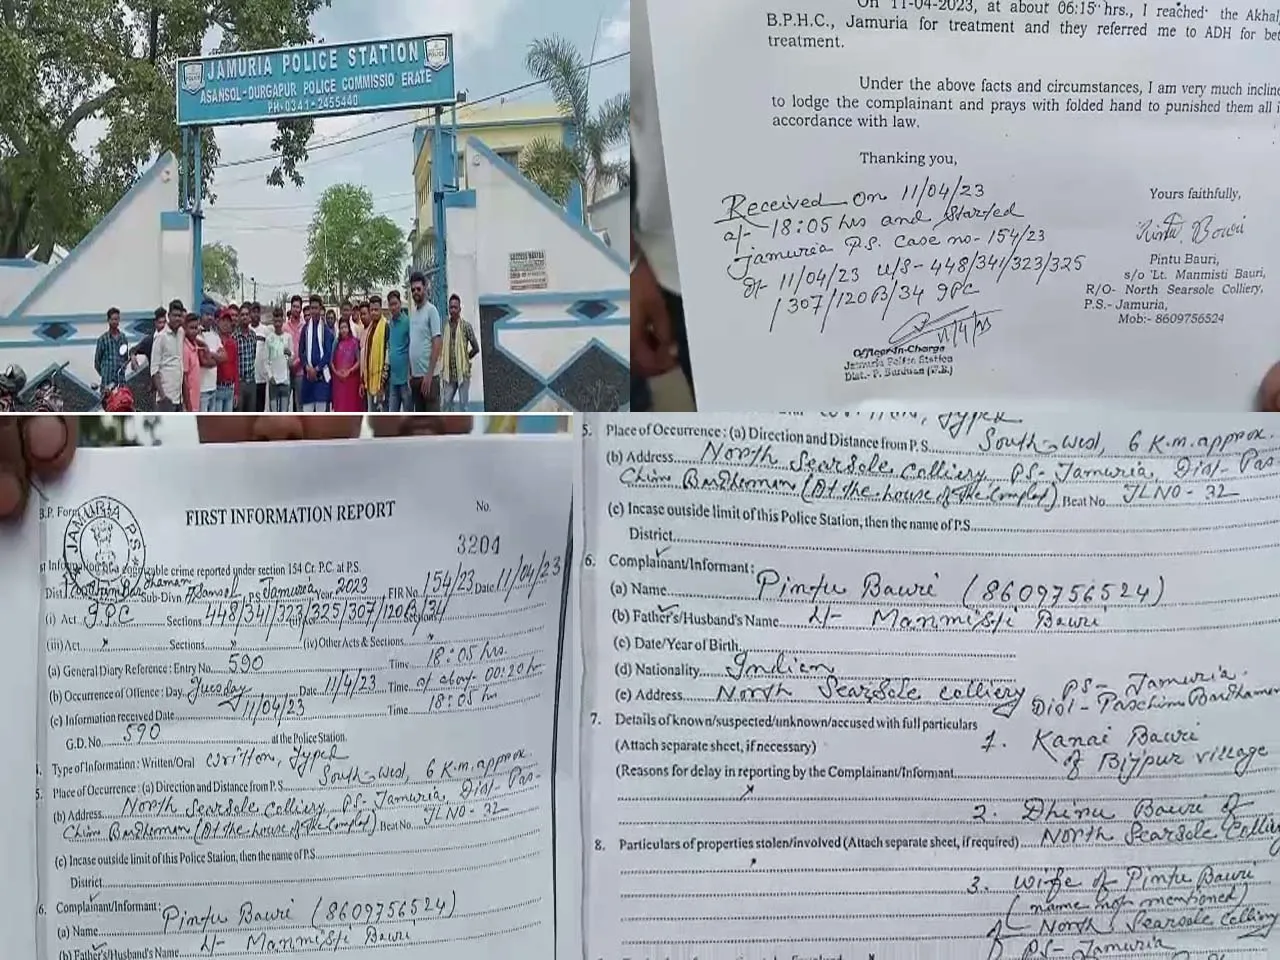 JAMURIA POLICE STATION
ASANSOL-DURGAPUR POLICE COMMISSIO ERATE
PH:0341-2455440
On 11-04-2023, at about 06:15 hrs., I reached the Akhal
B.P.H.C., Jamuria for treatment and they referred me to ADH for bet
treatment.
Under the above facts and circumstances, I am very much incline
to lodge the complainant and prays with folded hand to punished them all i
accordance with law.
Thanking you,
Received On 11/04/23
at- 18:05 hrs and started
Jamuria P.S. Case no- 154/23
Dt- 11/04/23 U/S- 448/341/323/325
/307/120B/34 IPC
11/4/23
Officer-In-Charge
Jamuria Police Station
Dist.- P. Burdwan (W.B.)
Yours faithfully,
Pintu Bauri
Pintu Bauri,
s/o Lt. Manmisti Bauri,
R/O- North Searsole Colliery,
P.S.- Jamuria,
Mob:- 8609756524
B.P. Form
JAMURIA P.S.
FIRST INFORMATION REPORT
No.
3204
cognizable crime reported under section 154 Cr. P.C. at P.S.
Dist. Sub-Divn Asansol P.S. Jamuria Year 2023 FIR No. 154/23 Date 11/04/23
(i) Act I.P.C Sections 448/341/323/325/307/120B/34
(iii) Act Sections (iv) Other Acts & Sections
(a) General Diary Reference : Entry No. 590 Time 18:05 hrs.
(b) Occurrence of Offence : Day Tuesday Date 11/4/23 Time at about 00:20 hr
(c) Information received Date 11/04/23 Time 18:05 hr
G.D. No. 590 at the Police Station.
4. Type of Information : Written/Oral Written, Typed
5. Place of Occurrence : (a) Direction and Distance from P.S. South-West, 6 K.m. approx.
(b) Address North Searsole Colliery, PS- Jamuria, Dist- Pas-
chim Bardhaman (At the house of the Complt) Beat No. JL NO- 32
(c) Incase outside limit of this Police Station, then the name of P.S.
District
6. Complainant/Informant :
(a) Name Pintu Bauri (8609756524)
(b) Father's/Husband's Name Lt- Manmisti Bauri
5. Place of Occurrence : (a) Direction and Distance from P.S. South-West, 6 K.m. approx.
(b) Address North Searsole Colliery, PS- Jamuria, Dist- Pas-
chim Bardhaman (At the house of the Complt) Beat No. JL NO- 32
(c) Incase outside limit of this Police Station, then the name of P.S.
District
6. Complainant/Informant :
(a) Name Pintu Bauri (8609756524)
(b) Father's/Husband's Name Lt- Manmisti Bauri
(c) Date/Year of Birth
(d) Nationality Indian
(e) Address North Searsole colliery PS- Jamuria.
Dist- Paschim Bardhaman
7. Details of known/suspected/unknown/accused with full particulars
(Attach separate sheet, if necessary) 1. Kanai Bauri
of Bijpur village
(Reasons for delay in reporting by the Complainant/Informant
2. Dhinu Bauri of
North Searsole Colliery
8. Particulars of properties stolen/involved (Attach separate sheet, if required)
3. wife of Pintu Bauri
(name not mentioned)
of- North Searsole Colliery
PS- Jamuria